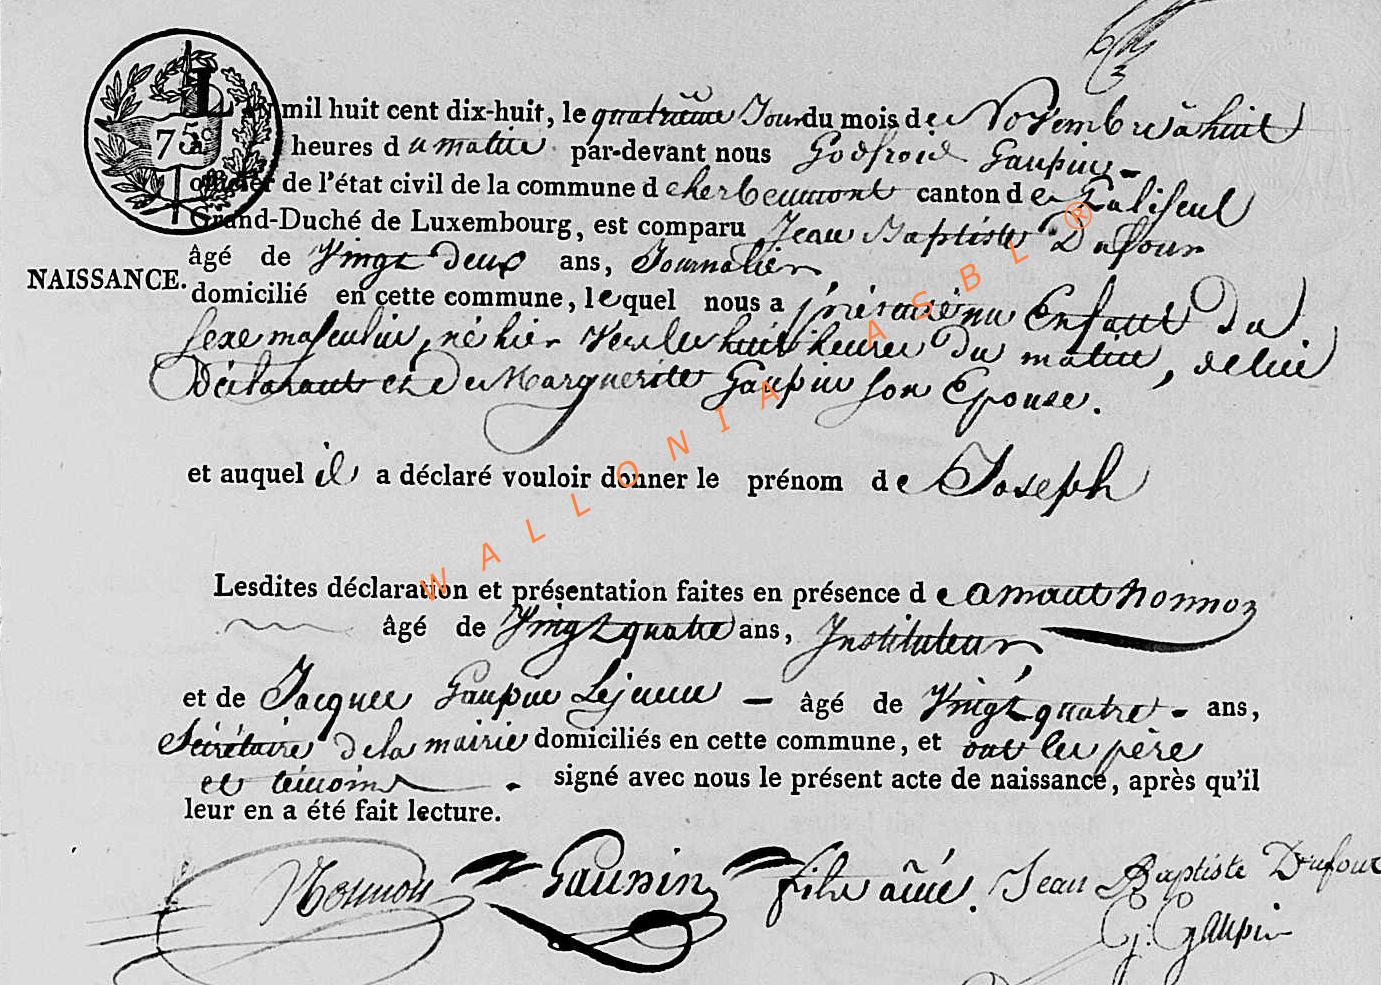 75c
L'an mil huit cent dix-huit, le quatrième Jour du mois de Novembre à huit
heures du matin par-devant nous Godfroid Gaupin
officier de l'état civil de la commune d'herbeumont canton de Paliseul
Grand-Duché de Luxembourg, est comparu Jean Baptiste Dufour
âgé de Vingt deux ans, Journalier,
NAISSANCE.
domicilié en cette commune, lequel nous a présenté un Enfant du
sexe masculin, né hier Vers les huit heures du matin, de lui
Déclarant et De Marguerite Gaupin son Epouse.
et auquel il a déclaré vouloir donner le prénom de Joseph
Lesdites déclaration et présentation faites en présence de amant nonnon
âgé de Vingt quatre ans, Instituteur,
et de Jacques Gaupin Lejeune — âgé de Vingt quatre - ans,
Sécrétaire de la mairie domiciliés en cette commune, et ont les père
et témoins signé avec nous le présent acte de naissance, après qu'il
leur en a été fait lecture.
Nonnon Gaupin fils aîné. Jean Baptiste Dufour
G. Gaupin
WALLONIA ASBL ®